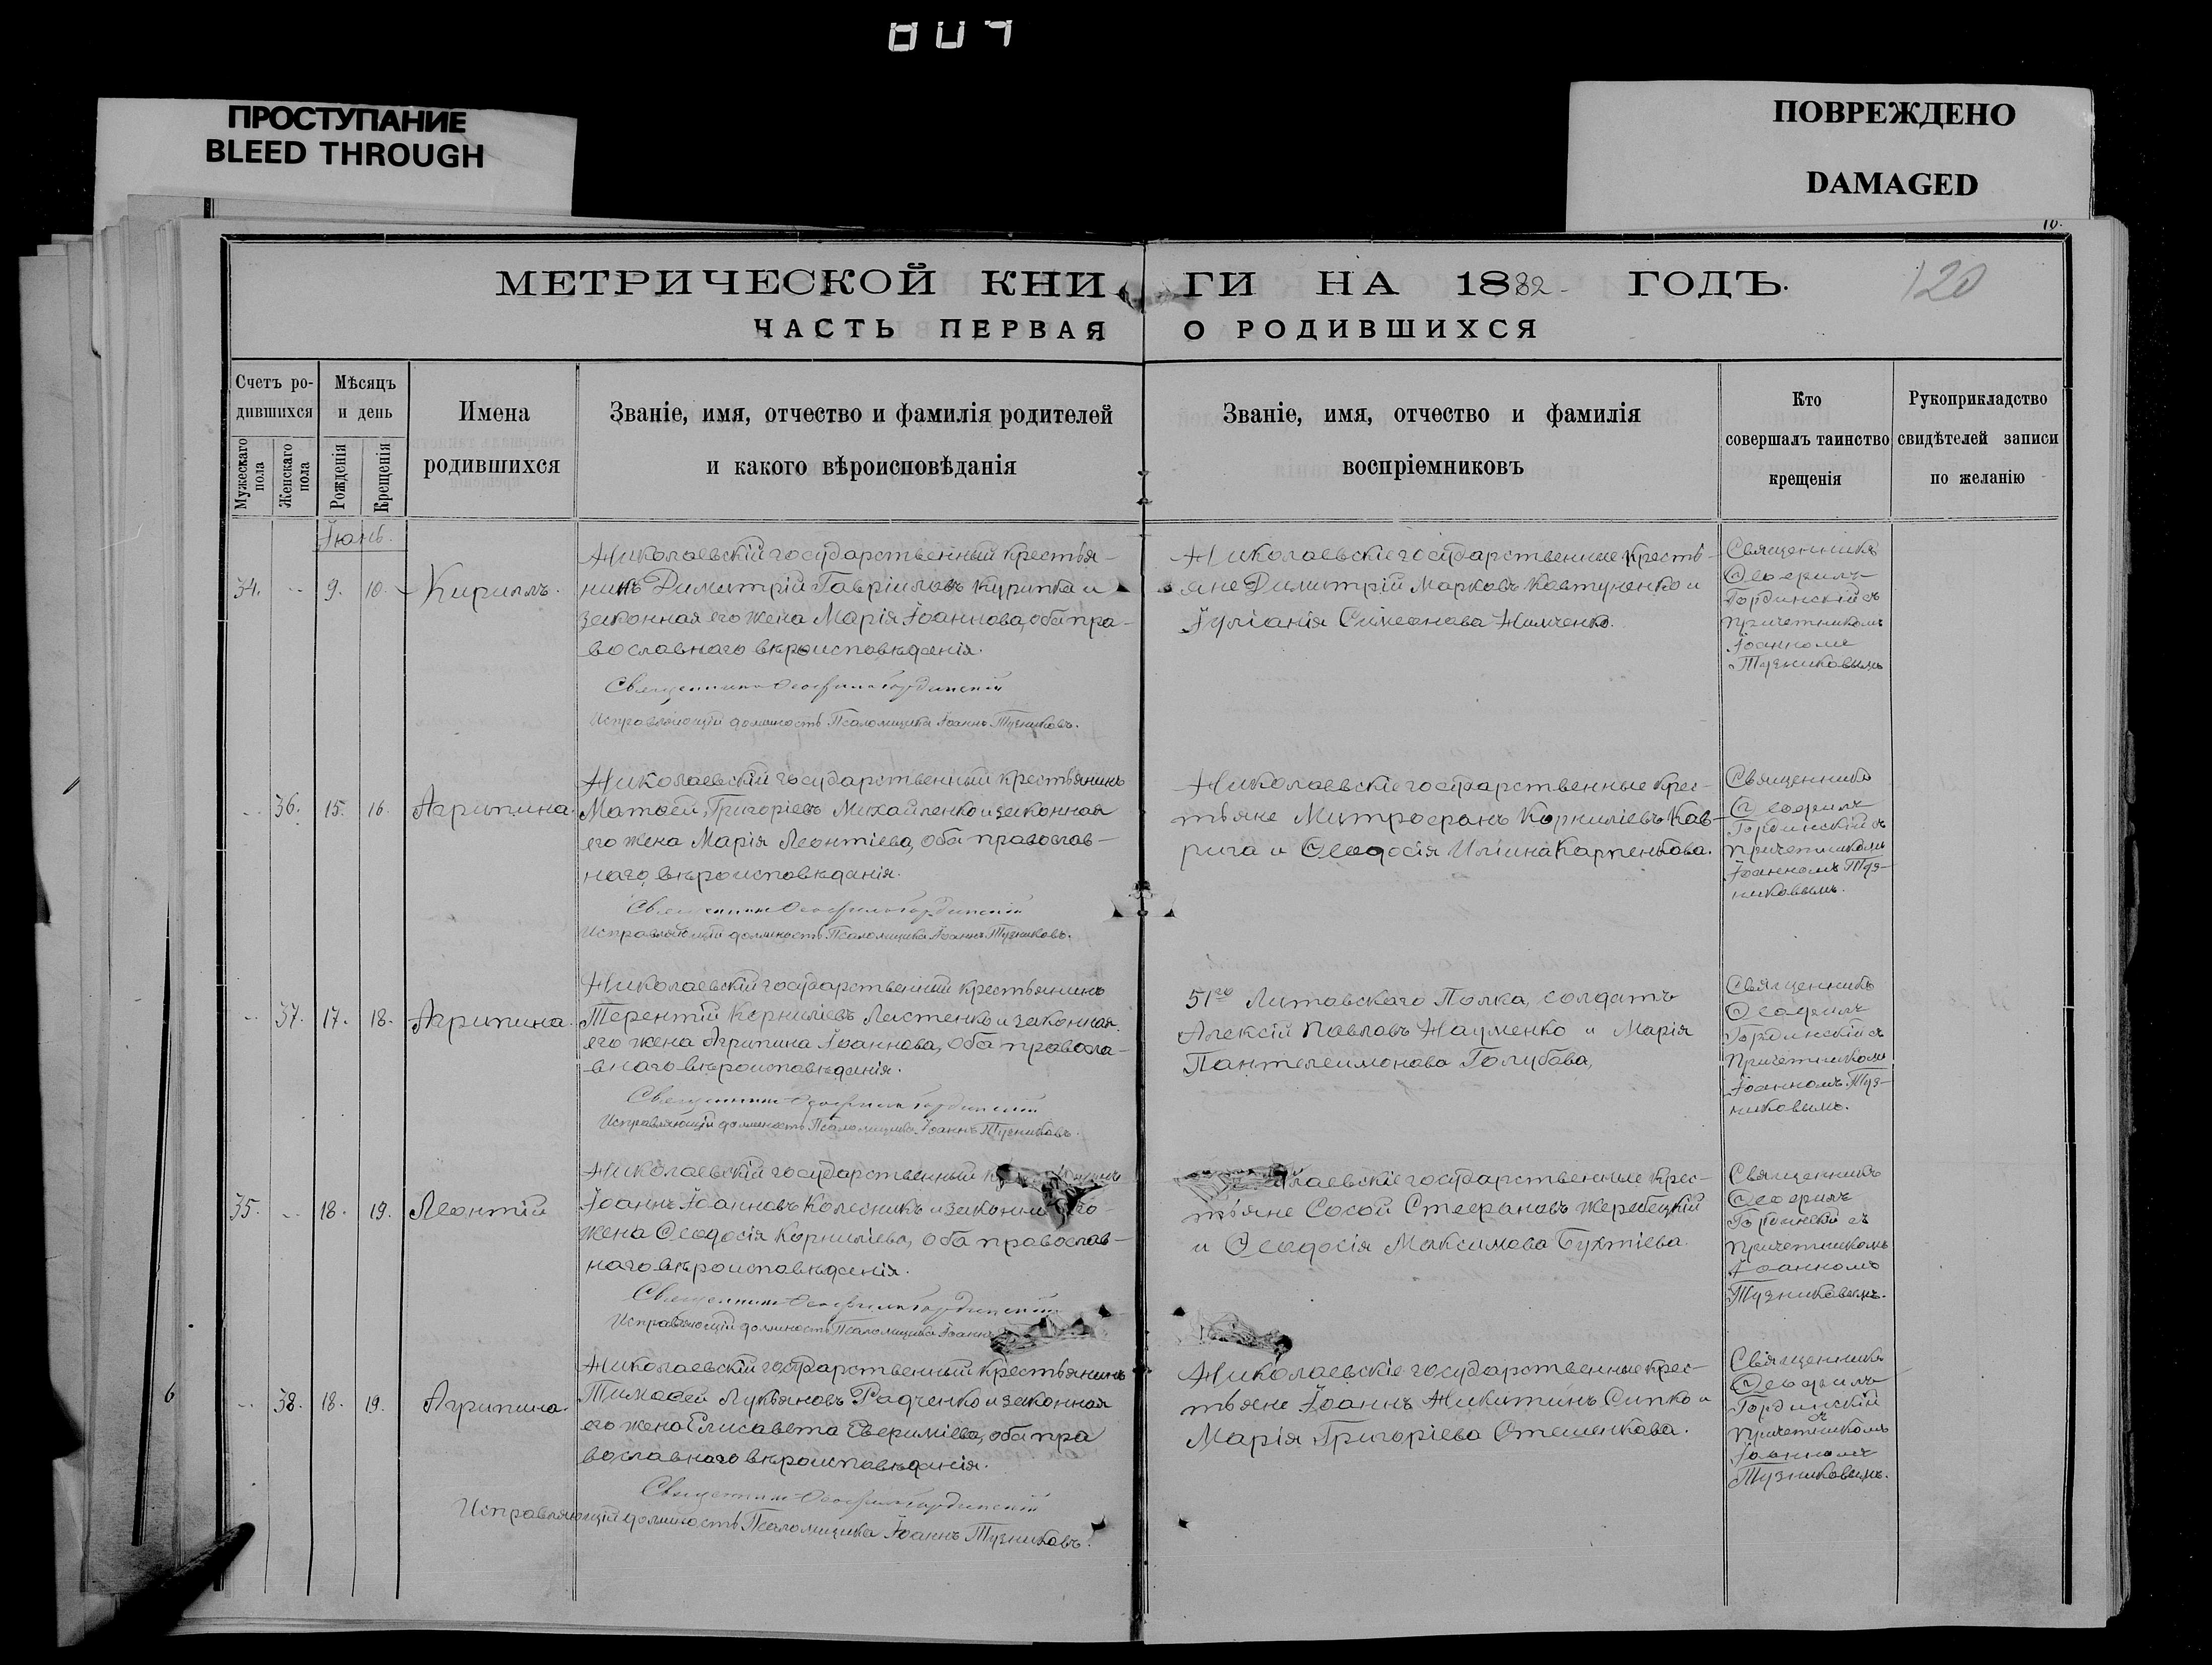 ПРОСТУПАНИЕ
BLEED THROUGH
ПОВРЕЖДЕНО
DAMAGED
10.
МЕТРИЧЕСКОЙ КНИГИ НА 1882 ГОДЪ.
120
ЧАСТЬ ПЕРВАЯ О РОДИВШИХСЯ
Счетъ ро-
дившихся
Мужескаго пола
Женскаго пола
Мѣсяцъ
и день
Рожденія
Крещенія
Имена
родившихся
Званіе, имя, отчество и фамилія родителей
и какого вѣроисповѣданія
Званіе, имя, отчество и фамилія
воспріемниковъ
Кто
совершалъ таинство
крещенія
Рукоприкладство
свидѣтелей записи
по желанію
Іюнь.
34. 9. 10. Кириллъ.
Николаевскій государственный крестья-
нинъ Димитрій Гавріиловъ Курипка и
законная его жена Марія Іоаннова, оба пра-
вославнаго вѣроисповѣданія.
Священникъ Ѳеофилъ Гординскій
Исправляющій должность Псаломщика Іоаннъ Тузниковъ.
Николаевскіе государственные кресть-
яне Димитрій Марковъ Ковтуненко и
Іуліанія Симеонова Нимченко.
Священникъ
Ѳеофилъ
Гординскій съ
причетникомъ
Іоанномъ
Тузниковымъ
36. 15. 16. Агрипина.
Николаевскій государственный крестьянинъ
Матѳей Григоріевъ Михайленко и законная
его жена Марія Леонтіева, оба православ-
наго вѣроисповѣданія.
Священникъ Ѳеофилъ Гординскій
Исправляющій должность Псаломщика Іоаннъ Тузниковъ.
Николаевскіе государственные крес-
тьяне Митрофанъ Корниліевъ Кав-
рига и Ѳеодосія Иліина Карпенкова.
Священникъ
Ѳеофилъ
Гординскій съ
причетникомъ
Іоанномъ Туз-
никовымъ.
37. 17. 18. Агрипина.
Николаевскій государственный крестьянинъ
Терентій Корниліевъ Листенко и законная
его жена Агрипина Іоаннова, оба правосла-
внаго вѣроисповѣданія.
Священникъ Ѳеофилъ Гординскій
Исправляющій должность Псаломщика Іоаннъ Тузниковъ.
51го Литовскаго Полка, солдатъ
Алексій Павловъ Науменко и Марія
Пантелеимонова Голубова,
Священникъ
Ѳеофилъ
Гординскій съ
Причетникомъ
Іоанномъ Туз-
никовымъ.
35. 18. 19. Леонтій
Николаевскій государственный
Іоаннъ Іоанновъ Колесникъ и законная его
жена Ѳеодосія Корниліева, оба православ-
наго вѣроисповѣданія.
Священникъ Ѳеофилъ Гординскій
Исправляющій должность Псаломщика Іоаннъ
лаевскіе государственные крес-
тьяне Сосой Стефановъ Жеребецкій
и Ѳеодосія Максимова Бухтіева.
Священникъ
Ѳеофилъ
Гординскій съ
причетникомъ
Іоанномъ
Тузниковымъ.
38. 18. 19. Агрипина.
Николаевскій государственный крестьянинъ
Тимоѳей Лукьяновъ Радченко и законная
его жена Елисавета Евфиміева, оба пра
вославнаго вѣроисповѣданія.
Священникъ Ѳеофилъ Гординскій
Исправляющій должность Псаломщика Іоаннъ Тузниковъ.
Николаевскіе государственные крес-
тьяне Іоаннъ Никитинъ Сипко и
Марія Григоріева Стешенкова.
Священникъ
Ѳеофилъ
Гординскій
съ
причетникомъ
Іоанномъ
Тузниковымъ.
6